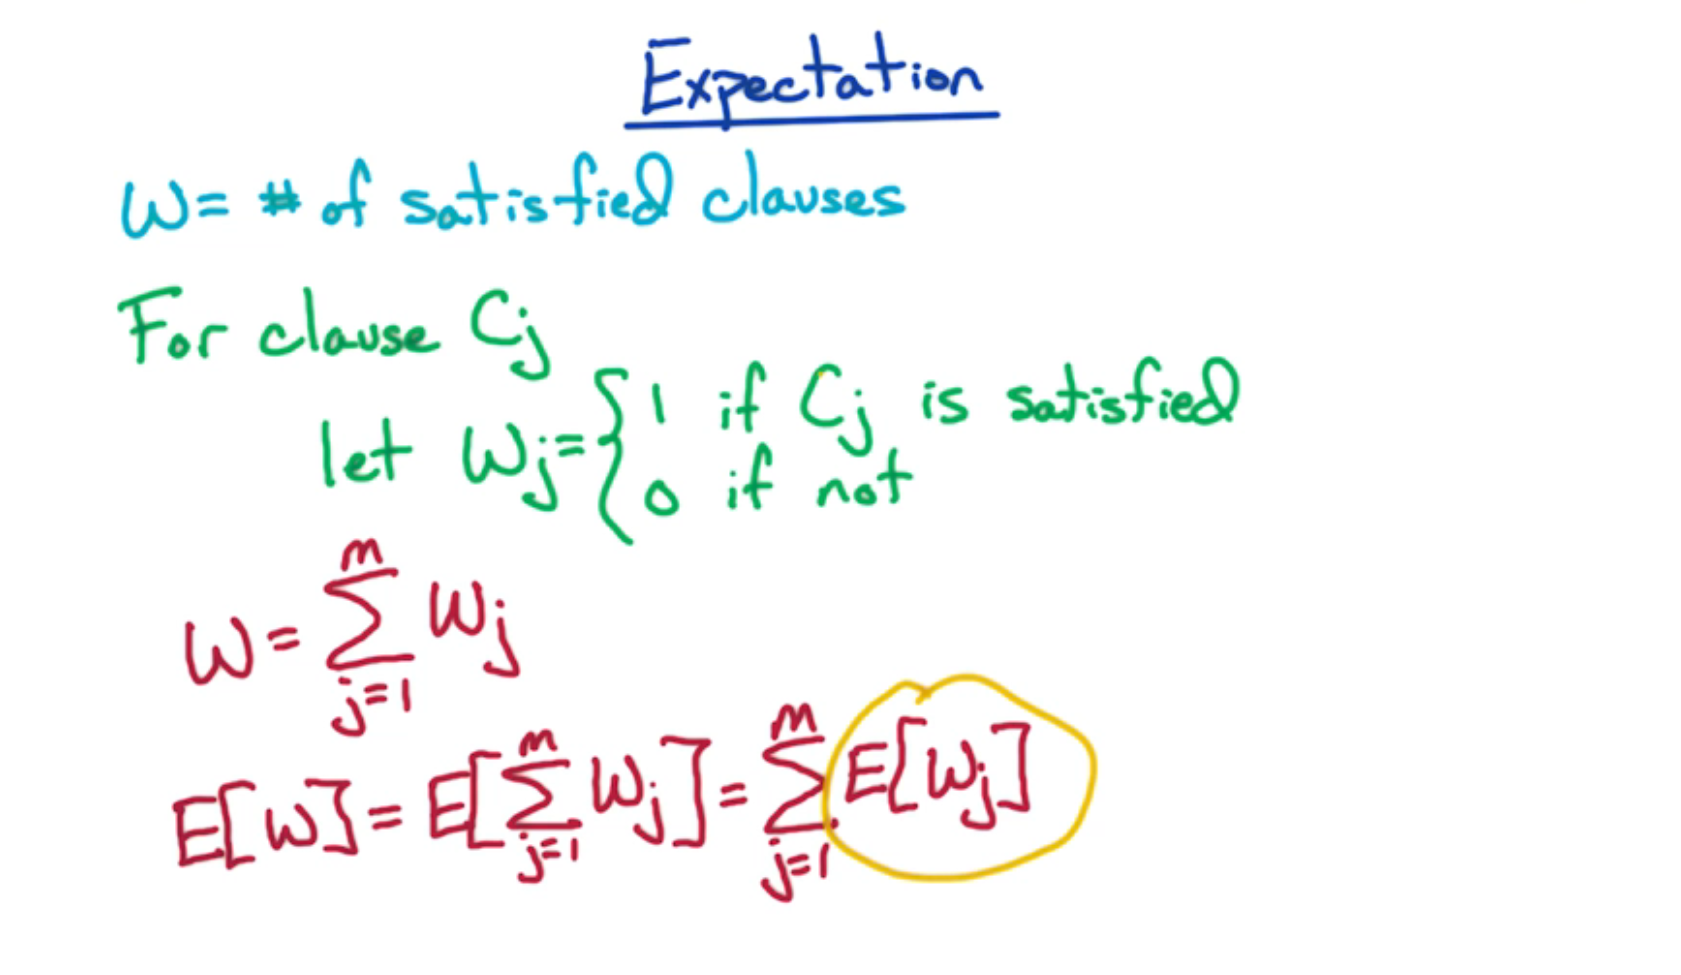 Expectation
W = # of satisfied clauses
For clause Cj
let Wj = { 1 if Cj is satisfied
0 if not
W = ∑_{j=1}^{m} Wj
E[W] = E[∑_{j=1}^{m} Wj] = ∑_{j=1}^{m} E[Wj]